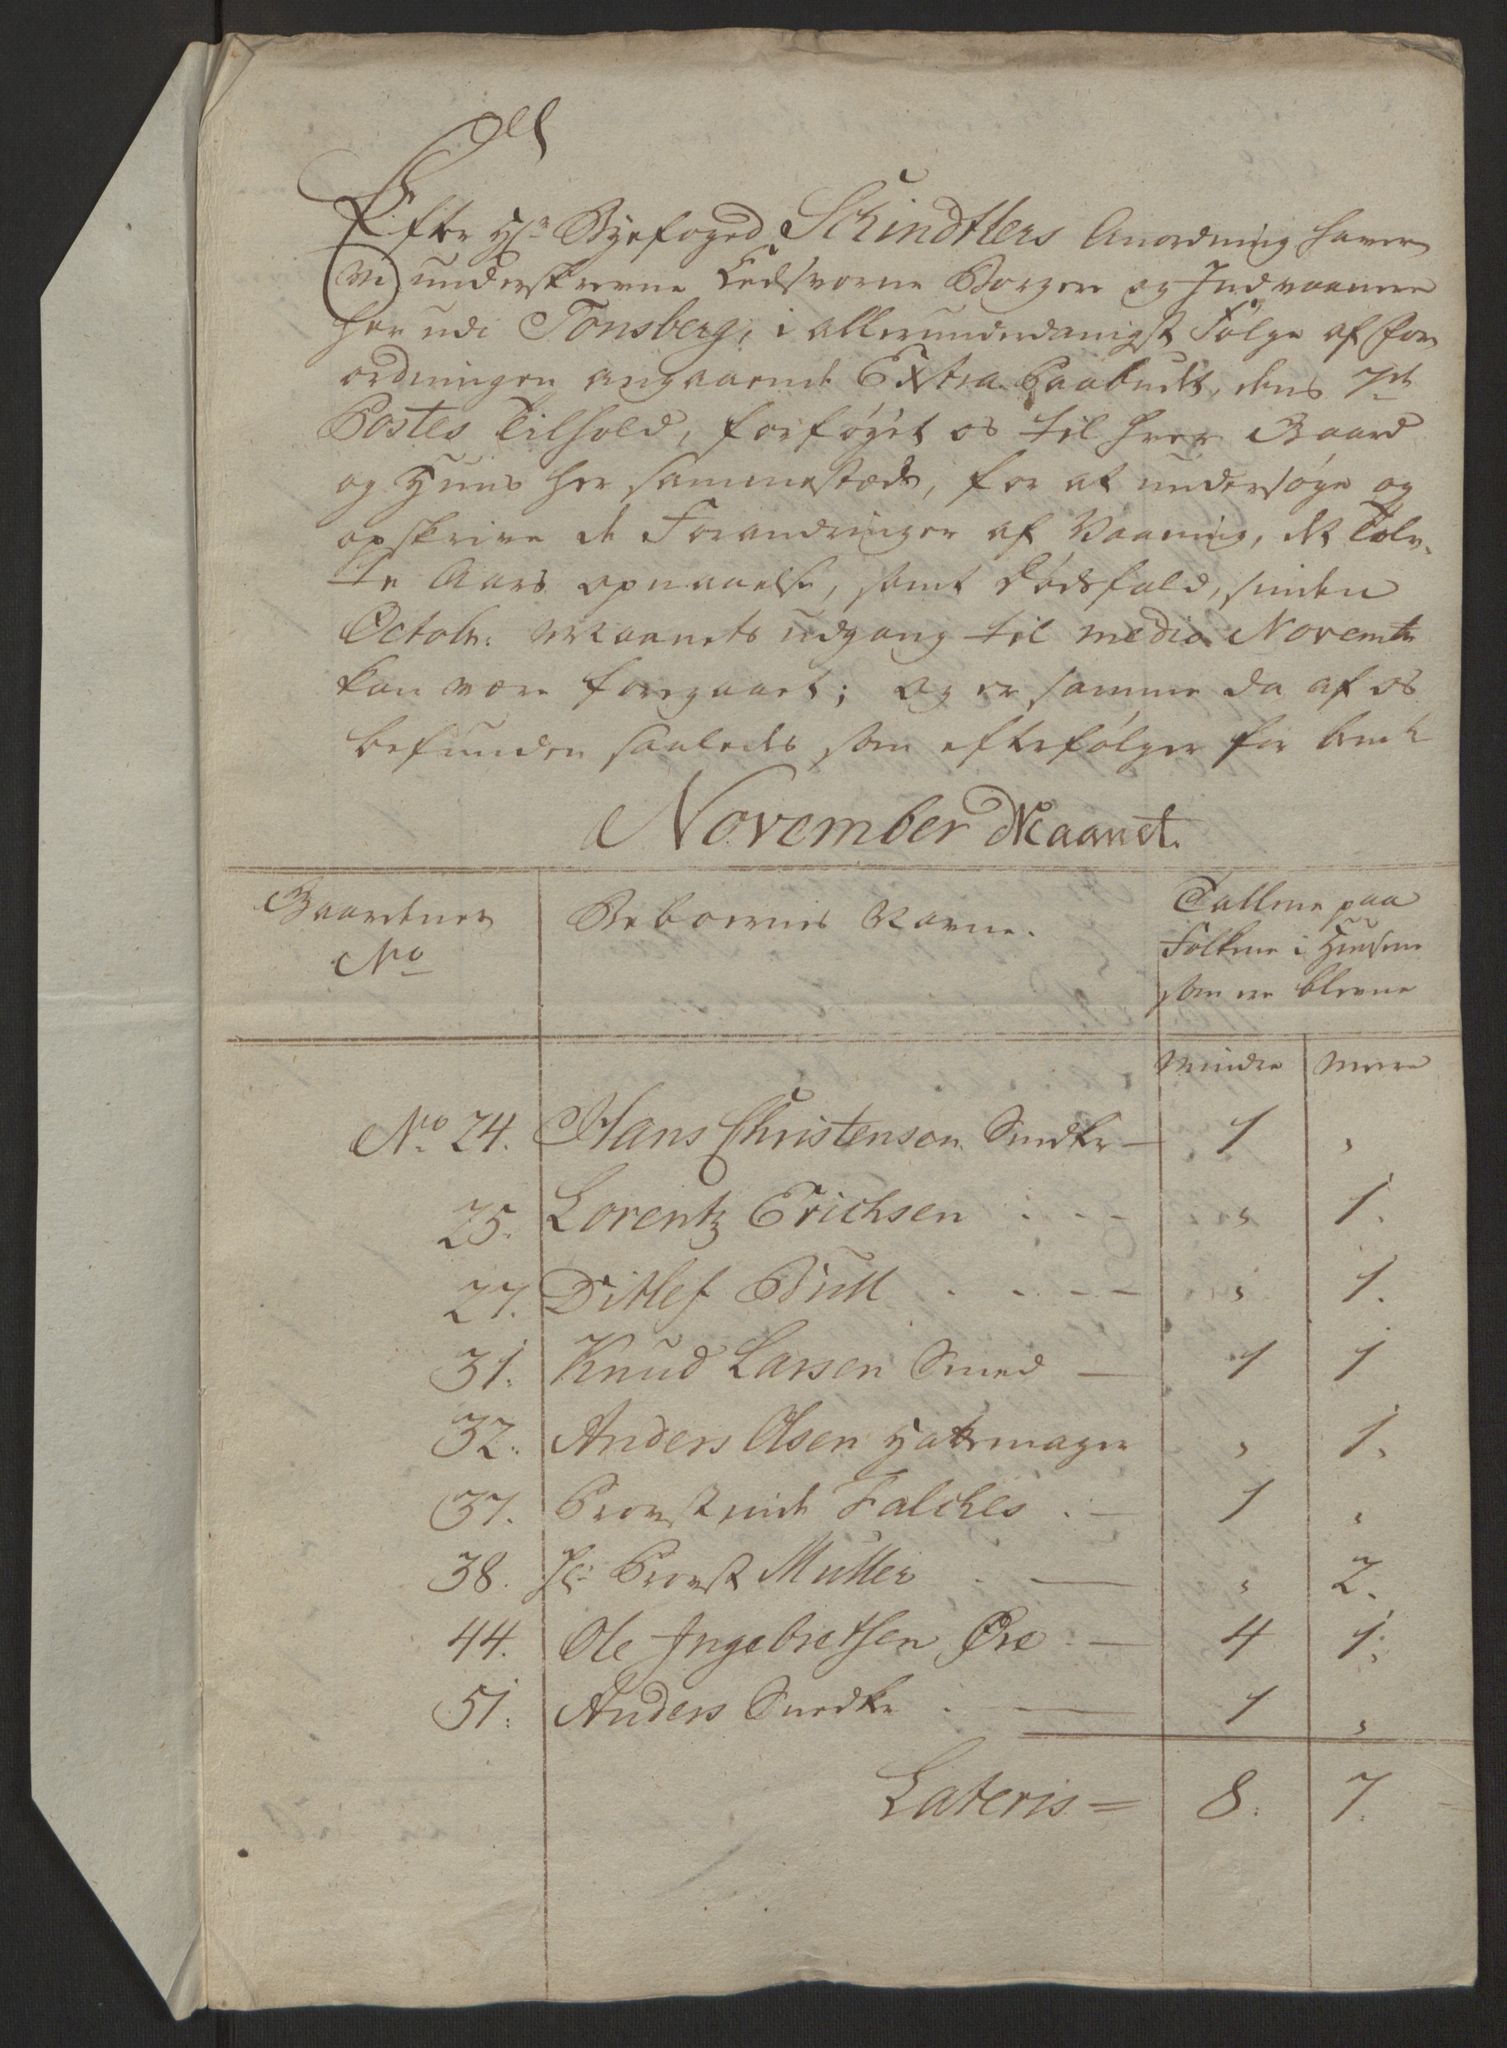 Efter Hr. Byefoged Schindtlers Anordning haver
vi underskrevne Eedsvorne Borgere og Indvaanere
her udi Tonsberg, i allerunderdanigst Følge af For
ordningen angaaende Extra Paabudet, dens 7de
Postes Tilhold, forføget os til hver Gaard
og Huus her sammestæds, for at undersøge og
opskrive de Forandringer af Vaaning, det Tolv-
te Aars opnaaelse, samt Dødsfald, siden
Octobr. Maanets udgang til medio Novembr
kan være foregaaet; og er samme da af os
befunden saaledes som efterfølger for bem.te
November Maanet.
Gaardenes No
Beboernes Navne.
Tallene paa
Folkene i Husene
som ere blevne
Mindre Meere
No. 24. Hans Christensen Snedker — 1 "
25. Lorentz Erichsen . . - - " 1.
27. Ditlef Bull . . . - - " 1.
31. Knud Larsen Smed — 1 1
32. Anders Olsen Hattemager " 1.
37. Provstinde Falches . — 1 "
38. Hr. Provst Muller . — " 2.
44. Ole Ingebretsen Øre . — 4 1.
51. Anders Snedker . — 1 "
Lateris = 8. 7.